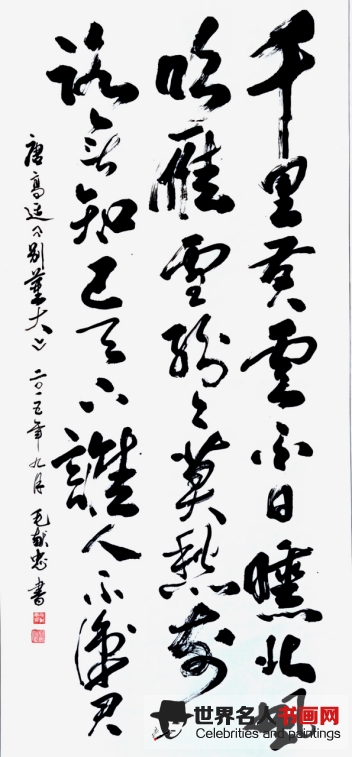 千里黄雲白日曛北風
吹雁雪紛々莫愁前
路无知己天下誰人不識君
唐高适《别董大》二〇一五年九月毛献忠書
世界名人书画网
Celebrities and paintings